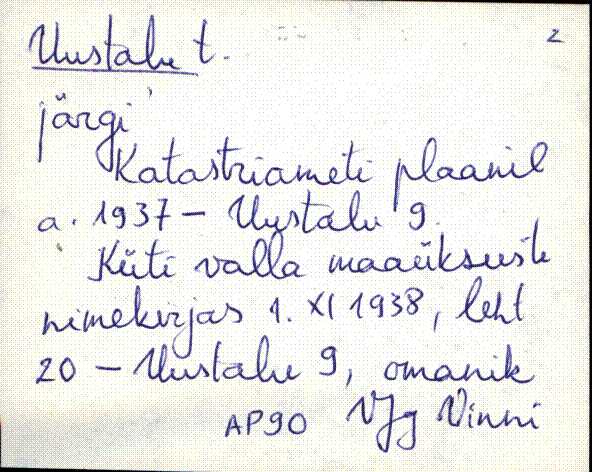 2
Uustalu t.
järgi
Katastriameti plaanil
a. 1937 — Uustalu 9.
Küti valla maaüksuste
nimekirjas 1. XI 1938, leht
20 — Uustalu 9, omanik
AP90 VJg Vinni